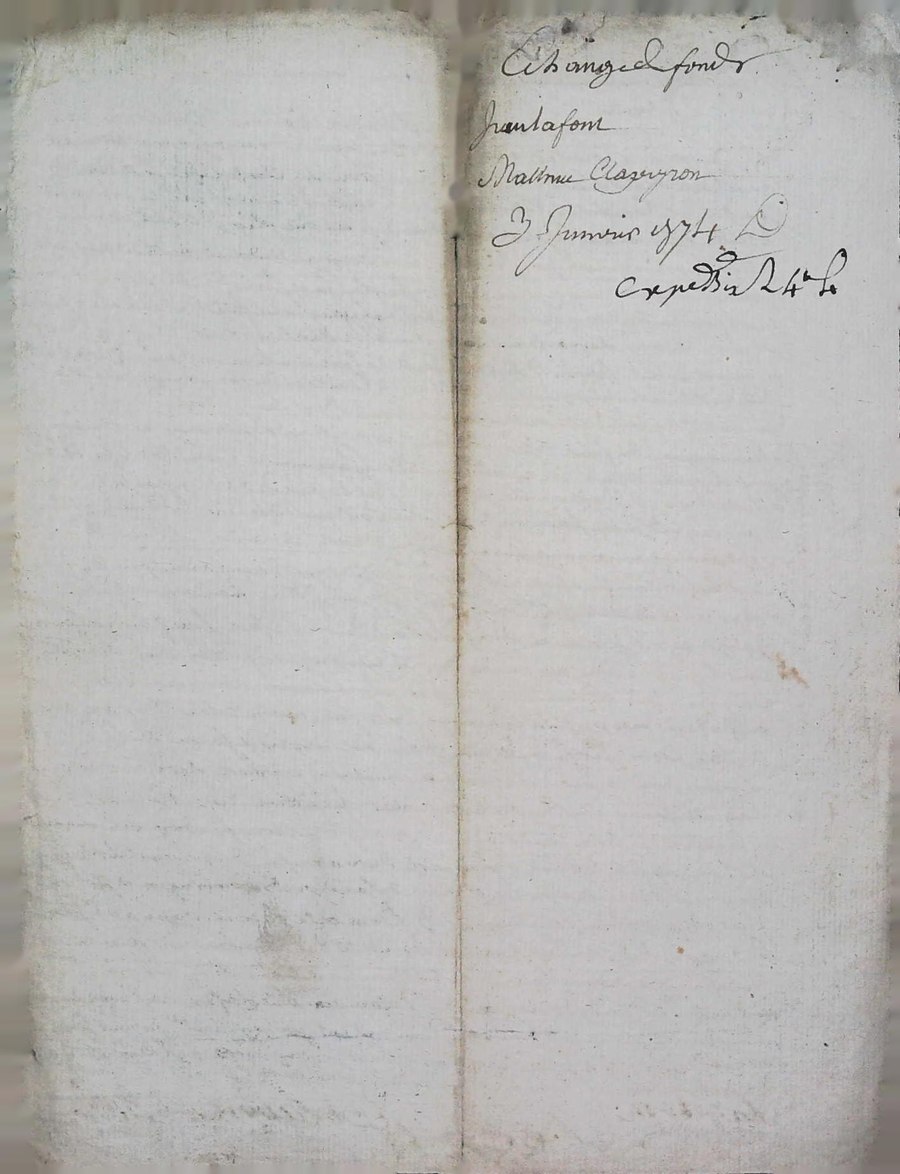 Echange de fondz
Jean lafont
Mathieu Clapeyron
3 Janvier 1974
expedié